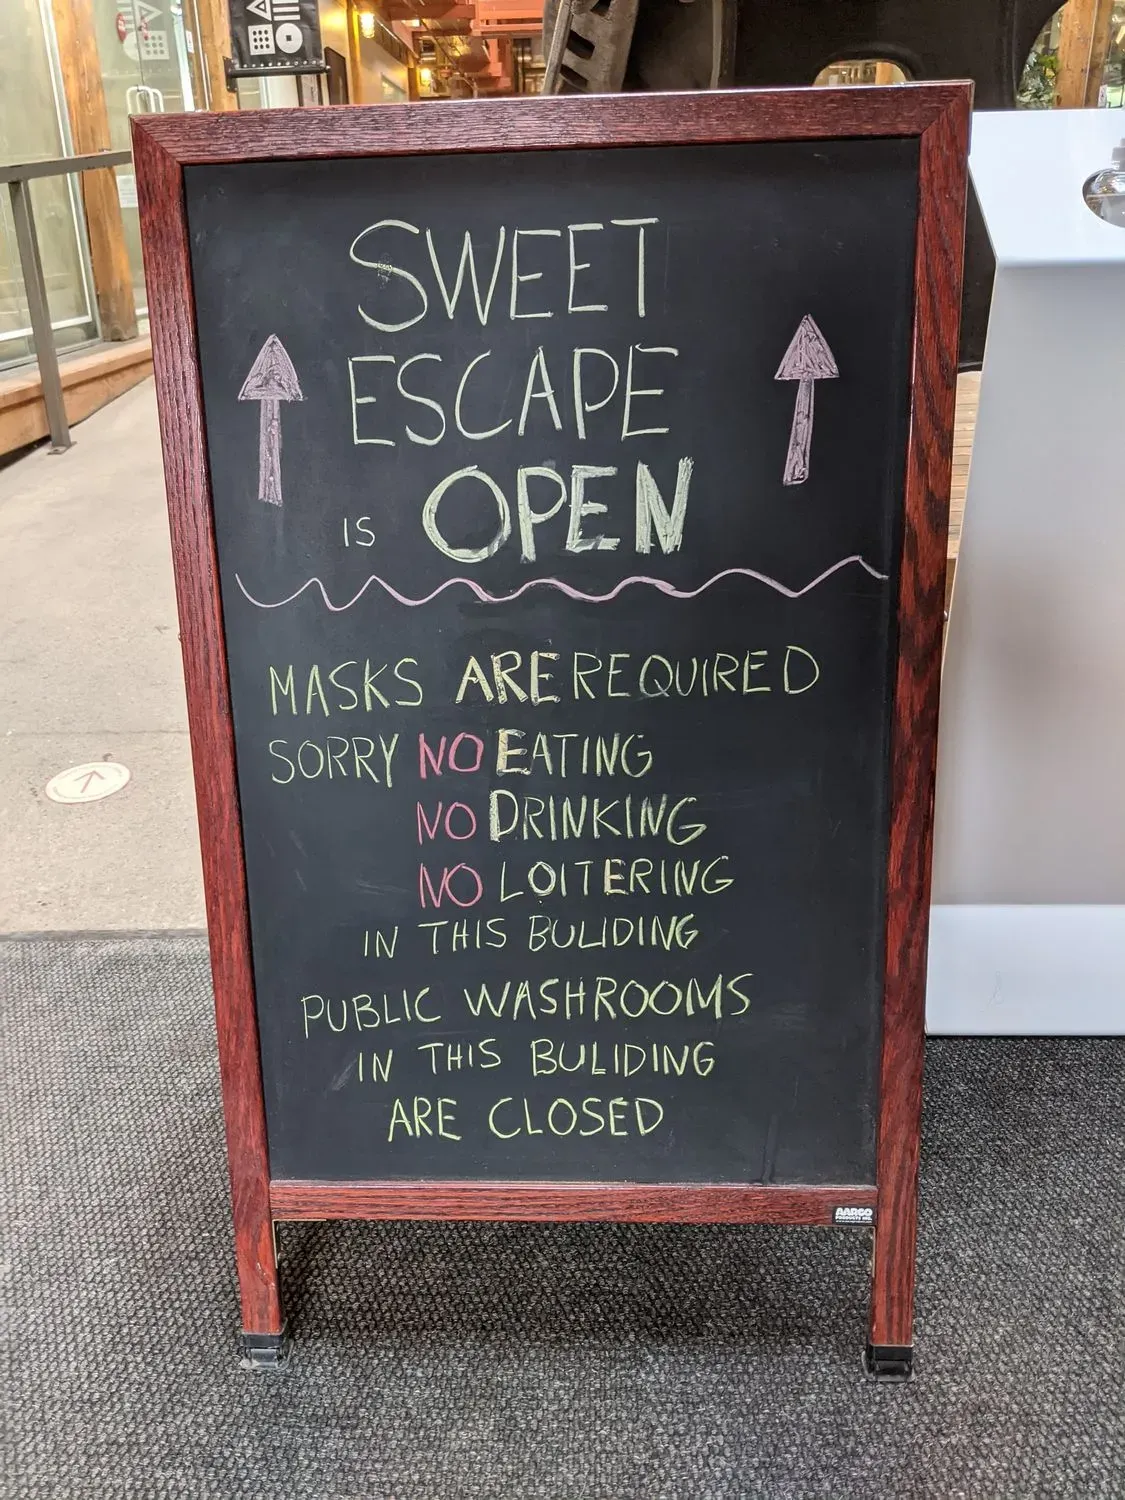 SWEET
ESCAPE
IS OPEN
MASKS ARE REQUIRED
SORRY NO EATING
NO DRINKING
NO LOITERING
IN THIS BULIDING
PUBLIC WASHROOMS
IN THIS BULIDING
ARE CLOSED
AARCO
PRODUCTS INC.